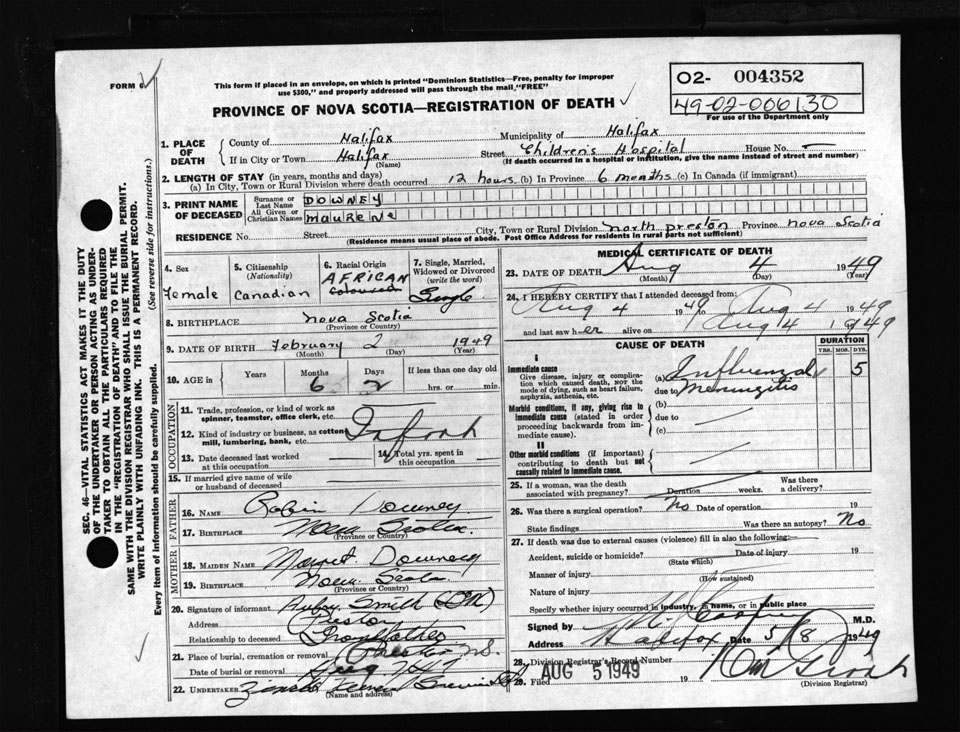 FORM 6
This form if placed in an envelope, on which is printed "Dominion Statistics—Free, penalty for improper
use $300," and properly addressed will pass through the mail "FREE"
PROVINCE OF NOVA SCOTIA—REGISTRATION OF DEATH
O2- 004352
49-02-006130
For use of the Department only
1. PLACE OF DEATH
County of Halifax Municipality of Halifax
If in City or Town Halifax Street Children's Hospital House No. —
(Name) (If death occurred in a hospital or institution, give the name instead of street and number)
2. LENGTH OF STAY (in years, months and days)
(a) In City, Town or Rural Division where death occurred 12 hours (b) In Province 6 months (c) In Canada (if immigrant)
3. PRINT NAME OF DECEASED
Surname or Last Name DOWNEY
All Given or Christian Names MAURENE
RESIDENCE No. Street City, Town or Rural Division North Preston Province Nova Scotia
(Residence means usual place of abode. Post Office Address for residents in rural parts not sufficient)
4. Sex
Female
5. Citizenship
(Nationality)
Canadian
6. Racial Origin
AFRICAN
Coloured
7. Single, Married,
Widowed or Divorced
(write the word)
Single
8. BIRTHPLACE Nova Scotia
(Province or Country)
9. DATE OF BIRTH February 2 1949
(Month) (Day) (Year)
10. AGE in Years Months 6 Days 2 If less than one day
hrs. or min.
OCCUPATION
11. Trade, profession, or kind of work as
spinner, teamster, office clerk, etc.
12. Kind of industry or business, as cotton
mill, lumbering, bank, etc.
13. Date deceased last worked
at this occupation
14. Total yrs. spent in
this occupation
15. If married give name of wife
or husband of deceased
FATHER
16. NAME Robin Downey
17. BIRTHPLACE Nova Scotia
(Province or Country)
MOTHER
18. MAIDEN NAME Margret Downey
19. BIRTHPLACE Nova Scotia
(Province or Country)
20. Signature of informant Smith
Address Preston
Relationship to deceased Grandfather
21. Place of burial, cremation or removal Preston N.S.
Date of burial or removal
22. UNDERTAKER
(Name and address)
MEDICAL CERTIFICATE OF DEATH
23. DATE OF DEATH Aug 4 1949
(Month) (Day) (Year)
24. I HEREBY CERTIFY that I attended deceased from:
Aug 4 1949 to Aug 4 1949
and last saw her alive on Aug 4 1949
CAUSE OF DEATH
DURATION
YRS. MOS. DYS.
I
Immediate cause
Give disease, injury or complication
which caused death, NOT the
mode of dying, such as heart failure,
asphyxia, asthenia, etc.
(a) Influenzal 5
due to Meningitis
Morbid conditions, if any, giving rise to
immediate cause (stated in order
proceeding backwards from immediate
cause).
(b)
due to
(c)
II
Other morbid conditions (if important)
contributing to death but not
causally related to immediate cause.
25. If a woman, was the death
associated with pregnancy? Duration weeks. Was there
a delivery?
26. Was there a surgical operation? No Date of operation 19
State findings Was there an autopsy? No
27. If death was due to external causes (violence) fill in also the following:
Accident, suicide or homicide? Date of injury 19
(State which)
Manner of injury
(How sustained)
Nature of injury
Specify whether injury occurred in industry, in home, or in public place
Signed by M.D.
Address Halifax Date 5/8/1949
28. Division Registrar's Record Number
29. Filed AUG 5 1949 19
(Division Registrar)
SEC. 46—VITAL STATISTICS ACT MAKES IT THE DUTY
OF THE UNDERTAKER OR PERSON ACTING AS UNDERTAKER
TO OBTAIN ALL THE PARTICULARS REQUIRED
IN THE "REGISTRATION OF DEATH" AND TO FILE THE
SAME WITH THE DIVISION REGISTRAR WHO SHALL ISSUE THE BURIAL PERMIT.
WRITE PLAINLY WITH UNFADING INK. THIS IS A PERMANENT RECORD.
Every item of information should be carefully supplied. (See reverse side for instructions.)